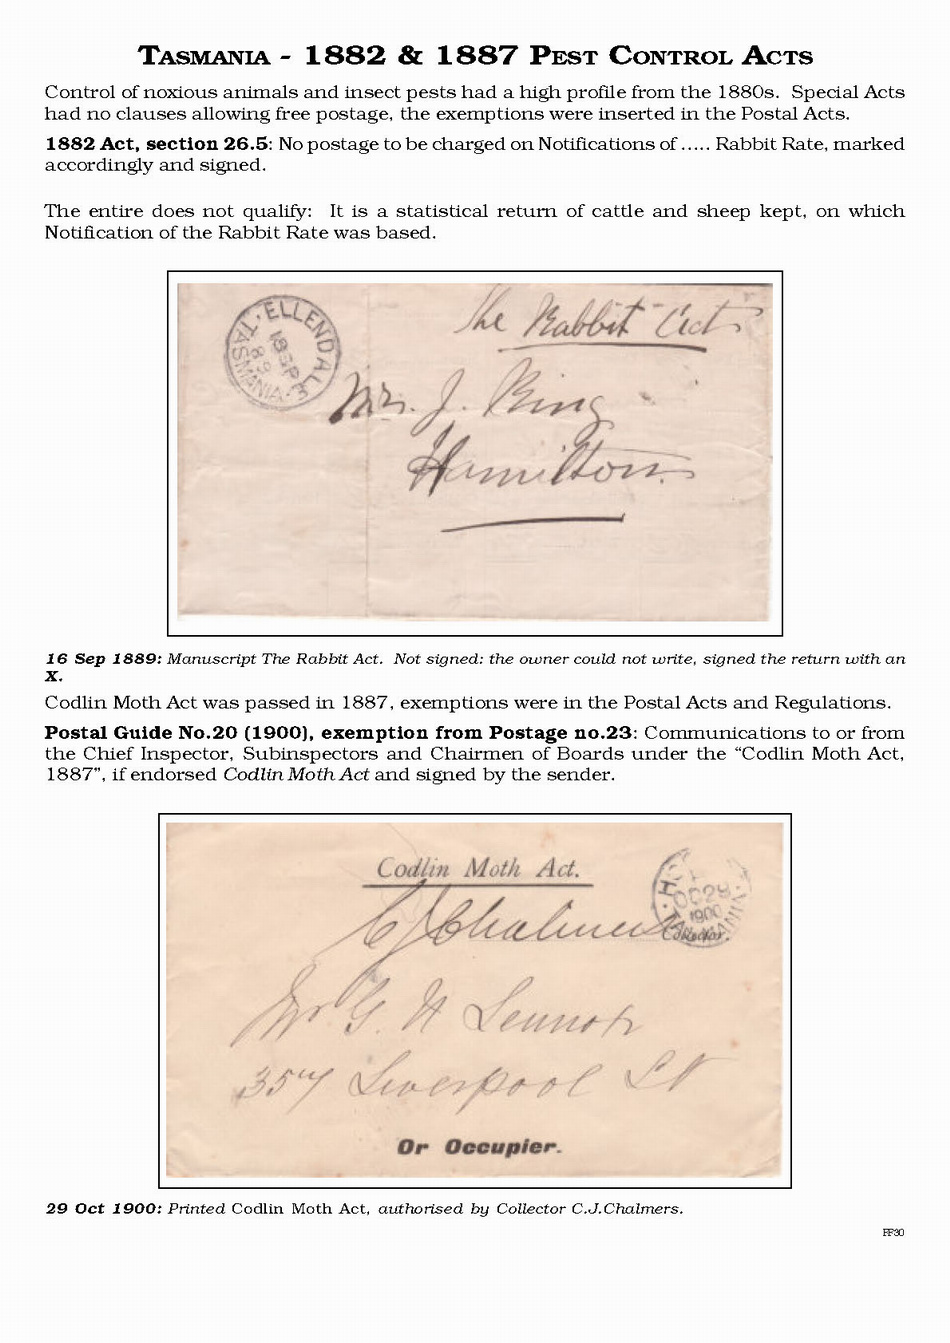 TASMANIA - 1882 & 1887 PEST CONTROL ACTS
Control of noxious animals and insect pests had a high profile from the 1880s. Special Acts
had no clauses allowing free postage, the exemptions were inserted in the Postal Acts.
1882 Act, section 26.5: No postage to be charged on Notifications of ..... Rabbit Rate, marked
accordingly and signed.
The entire does not qualify: It is a statistical return of cattle and sheep kept, on which
Notification of the Rabbit Rate was based.
ELLENDALE
TASMANIA
89
The Rabbit Act
Mr. J. Bing
Hamilton
16 Sep 1889: Manuscript The Rabbit Act. Not signed: the owner could not write, signed the return with an
X.
Codlin Moth Act was passed in 1887, exemptions were in the Postal Acts and Regulations.
Postal Guide No.20 (1900), exemption from Postage no.23: Communications to or from
the Chief Inspector, Subinspectors and Chairmen of Boards under the “Codlin Moth Act,
1887”, if endorsed Codlin Moth Act and signed by the sender.
Codlin Moth Act.
OC 29
1900
TASMANIA
C J Chalmers
Collector.
Mr G. H Lennox
357 Liverpool St
Or Occupier.
29 Oct 1900: Printed Codlin Moth Act, authorised by Collector C.J.Chalmers.
FF30